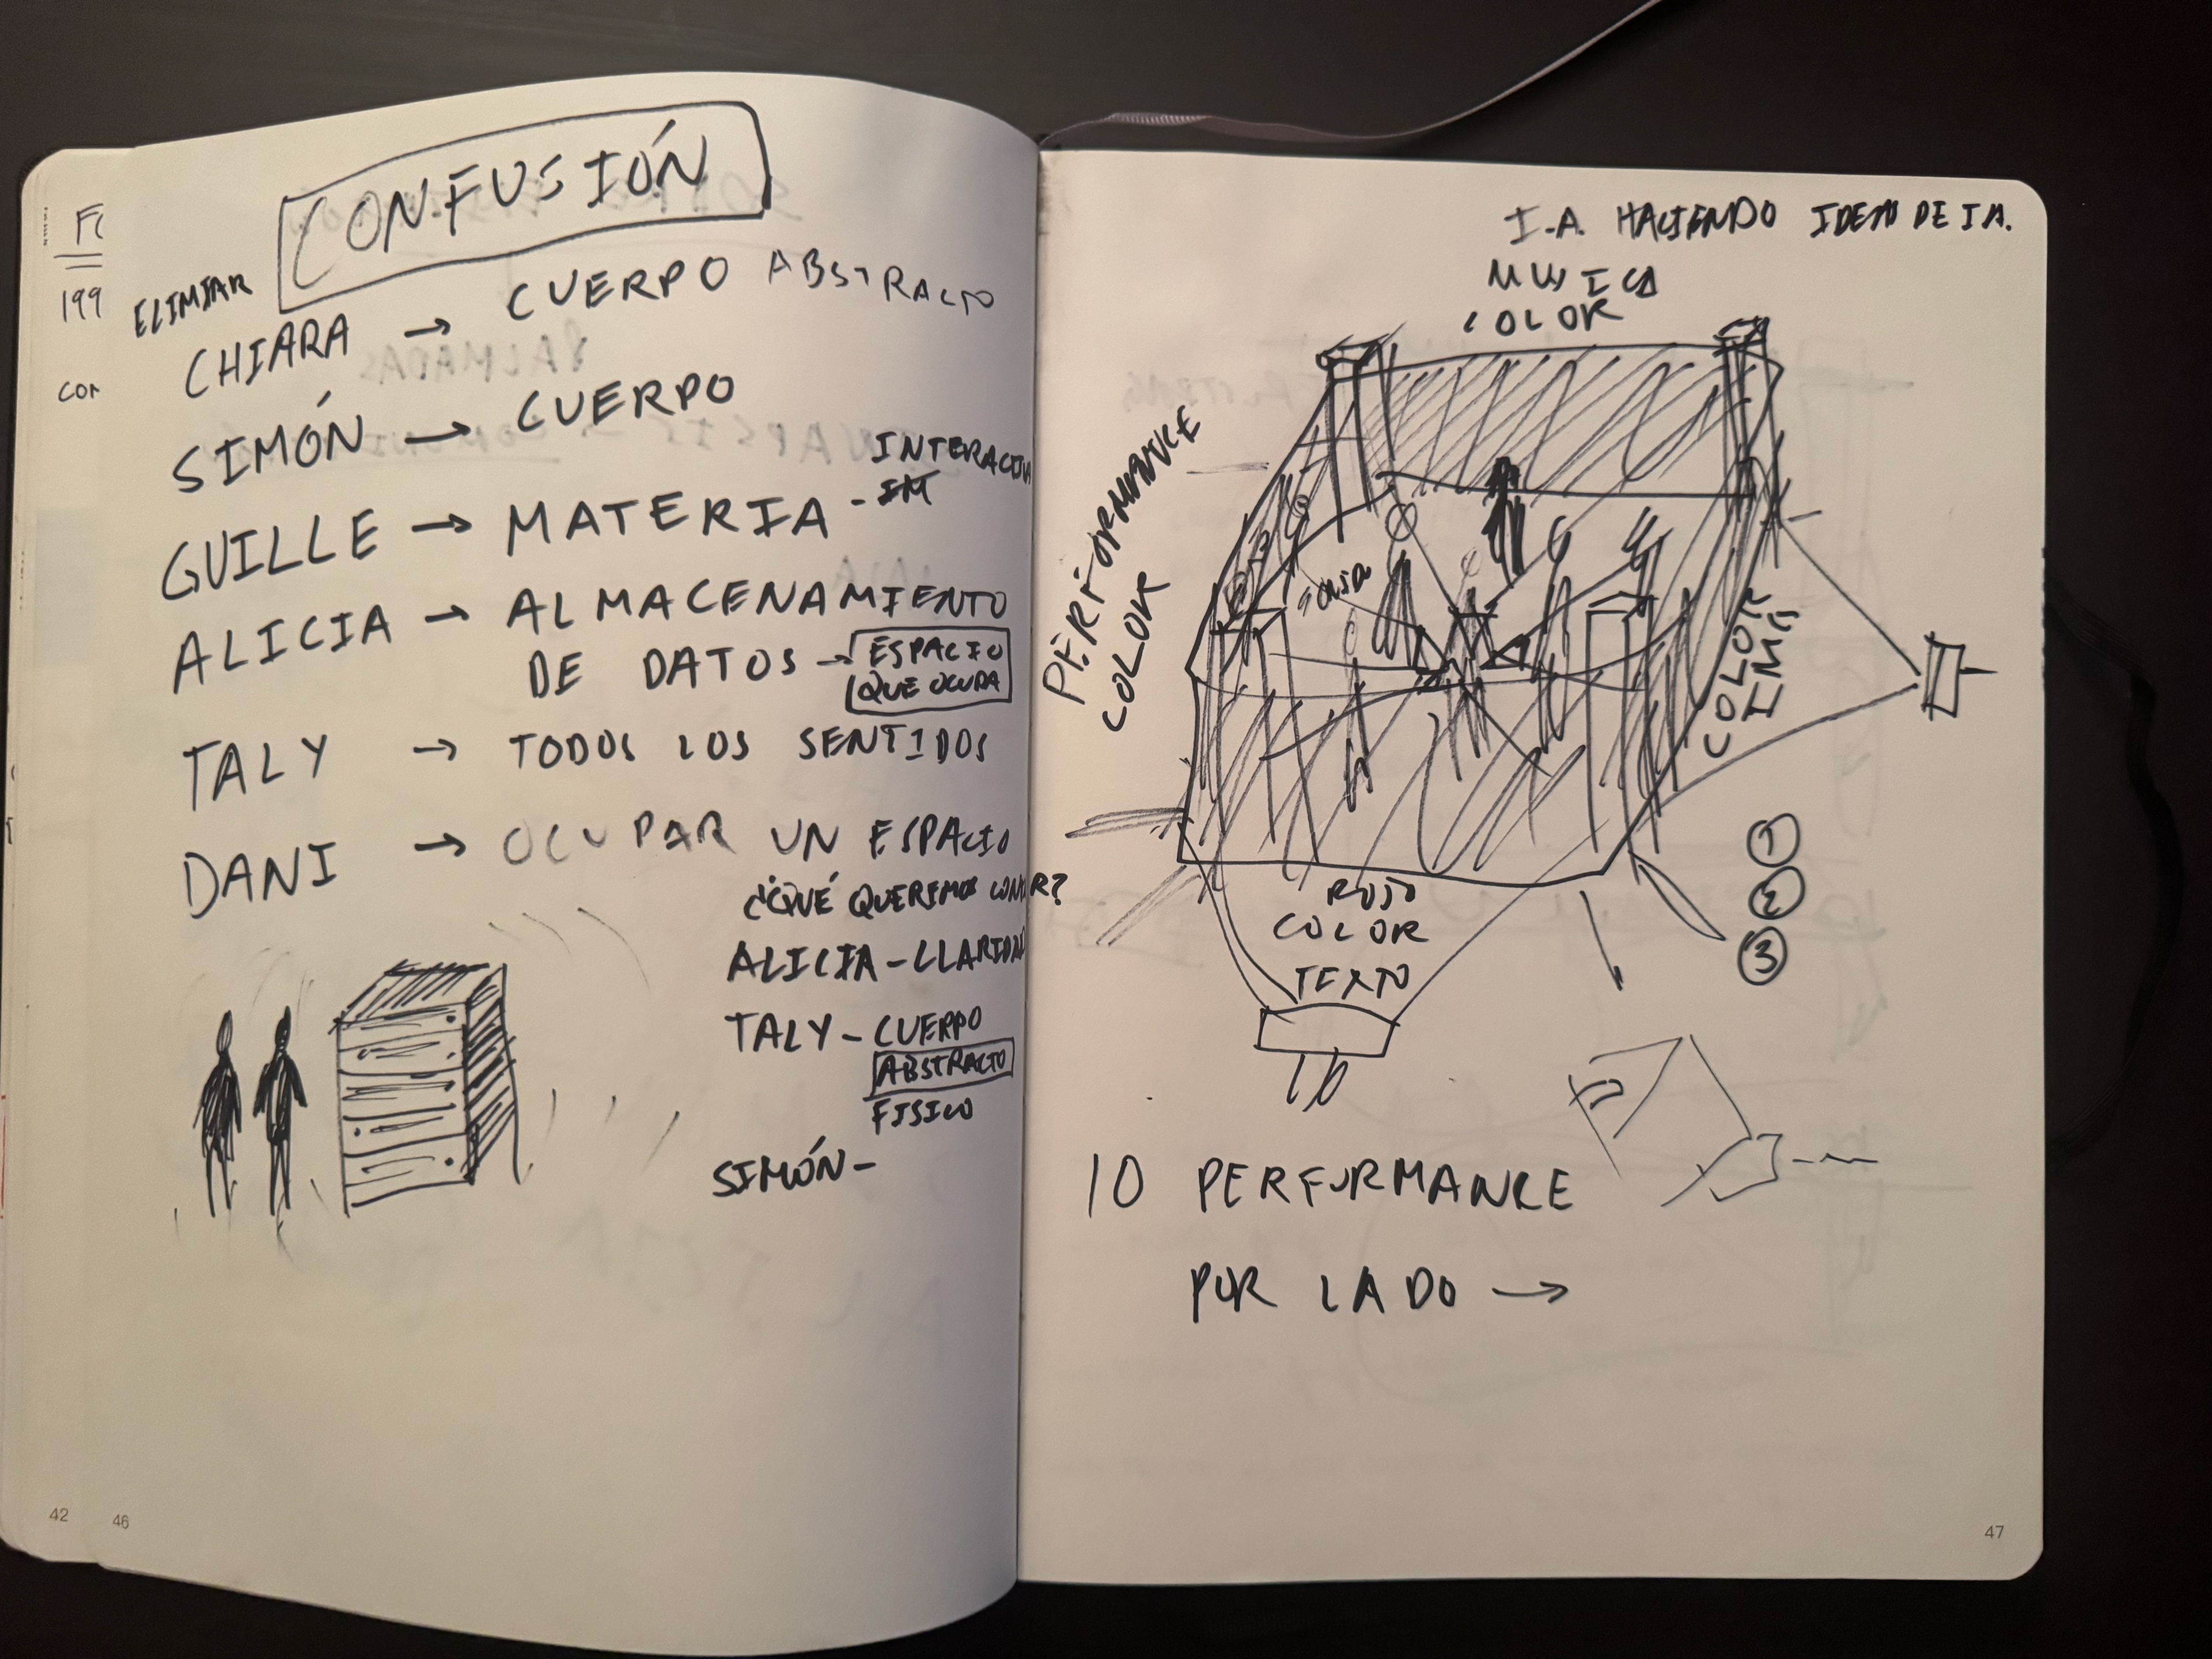 CONFUSIÓN
CHIARA → CUERPO ABSTRACTO
SIMÓN → CUERPO
GUILLE → MATERIA - INTERACTIVA
ALICIA → ALMACENAMIENTO
DE DATOS → ESPACIO
QUE OCUPA
TALY → TODOS LOS SENTIDOS
DANI → OCUPAR UN ESPACIO
¿QUÉ QUEREMOS CONTAR?
ALICIA -
TALY - CUERPO
ABSTRACTO
FISICO
SIMÓN -
199
42
46
I.A. HACIENDO IDEAS DE IA.
MUSICA
COLOR
PERFORMANCE
COLOR
SONIDO
COLOR
IMG
ROJO
COLOR
TEXTO
1
2
3
10 PERFORMANCE
POR LADO →
47